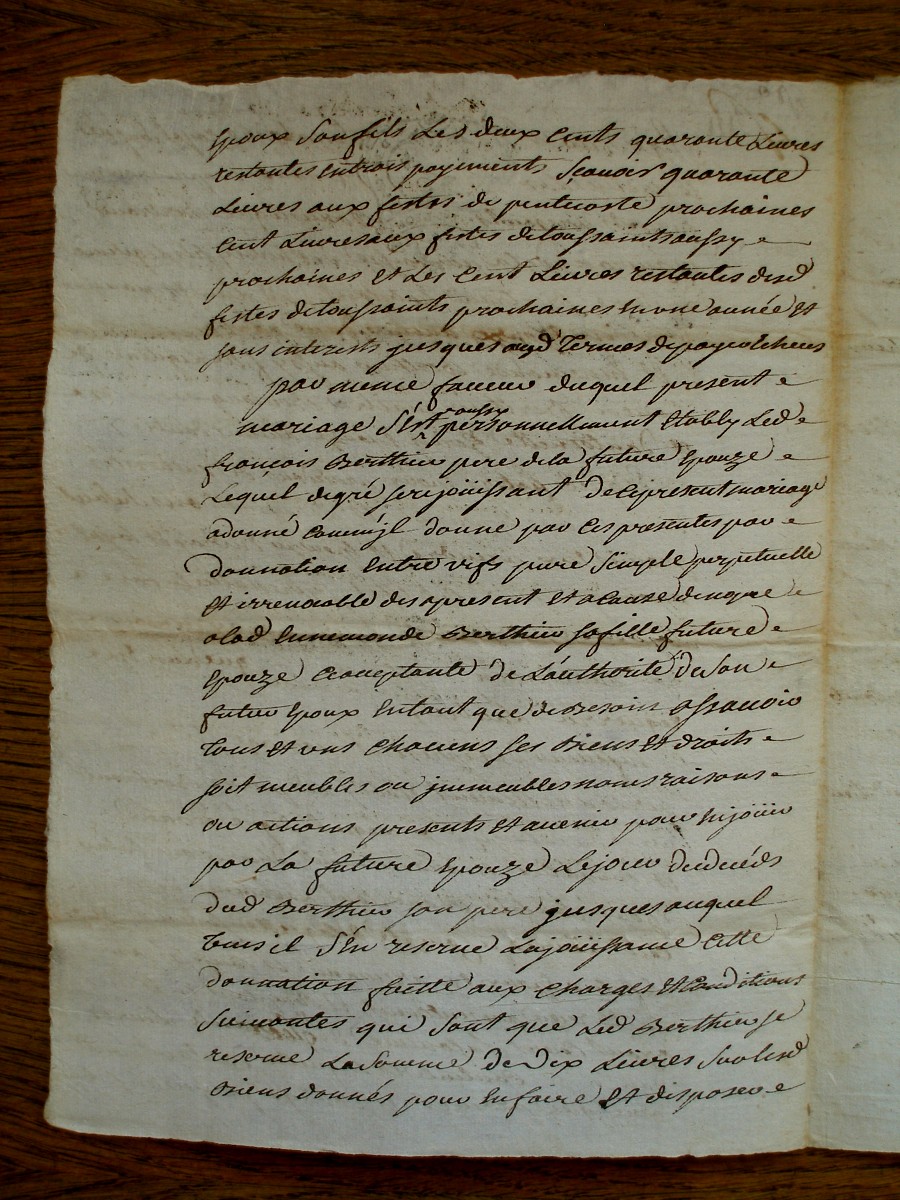 Epoux son fils Les deux cents quarante Livres
restantes en trois payements sçauoir quarante
Livres aux festes de pentecoste prochaines
cent Livres aux festes de toussaints aussy
prochaines et Les cent Livres restantes desd
festes de toussaints prochaines en une année et
sans interests jusques auxd termes de paye
par meme faveur duquel present
mariage s'est aussy personnellement etably Led
françois Berthier pere de la future Epouze
Lequel de gré se rejoüissant de ce present mariage
a donné comm'jl donne par ces presentes par
donnation entre vifs pure simple perpetuelle
et irrevocable des apresent et a cause de nopce
a lad Ennemonde Berthier sa fille future
Epouze acceptante de L'authorité de son
futur Epoux entant que de Besoin assavoir
tous et uns chacuns ses Biens et droits
soit meubles ou jmmeubles noms raisons
ou actions presents et avenir pour en joüir
par La future Epouze Le jour du decéds
dud Berthier son pere jusques auquel
tems il s'en reserve La joüissance cette
donnation faitte aux charges et conditions
suivantes qui sont que Led Berthier se
reserve La somme de dix Livres sur lesd
Biens donnés pour en faire et disposer